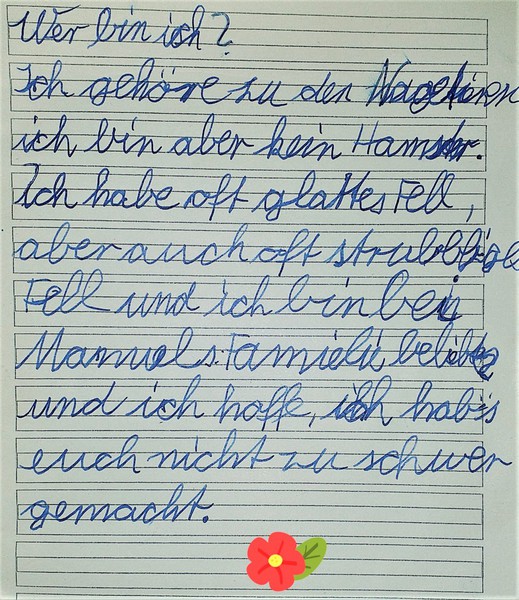 Wer bin ich?
Ich gehöre zu den Nagetieren
ich bin aber kein Hamster.
Ich habe oft glattes Fell,
aber auch oft strubbliges
Fell und ich bin bei
Manuels Familie beliebt
und ich hoffe, ich hab's
euch nicht zu schwer
gemacht.